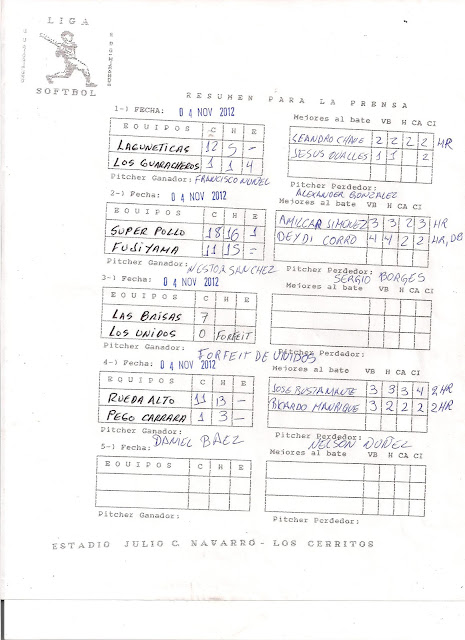 LIGA
SOFTBOL
RESUMEN PARA LA PRENSA
1-) FECHA: 04 NOV 2012
Mejores al bate VB H CA CI
EQUIPOS C H E
LAGUNETICAS 12 5 -
LOS GUARACHEROS 1 1 4
LEANDRO CHAVE 2 2 2 2 HR
JESUS OVALLES 1 1 2
Pitcher Ganador: FRANCISCO NUÑEZ
Pitcher Perdedor: ALEXANDER GONZALEZ
2-) Fecha: 04 NOV 2012
Mejores al bate VB H CA CI
EQUIPOS C H E
SUPER POLLO 18 16 1
FUJIYAMA 11 15 -
AMILCAR SIMONEZ 3 3 2 3 HR
DEYDI CORRO 4 4 2 2 HR, DB
Pitcher Ganador: NESTOR SANCHEZ
Pitcher Perdedor: SERGIO BORGES
3-) Fecha: 04 NOV 2012
Mejores al bate VB H CA CI
EQUIPOS C H E
LAS BRISAS 7
LOS UNIDOS 0 FORFEIT
Pitcher Ganador: FORFEIT DE UNIDOS
Pitcher Perdedor:
4-) Fecha: 04 NOV 2012
Mejores al bate VB H CA CI
EQUIPOS C H E
RUEDA ALTO 11 13 -
PEGO CARRARA 1 3 -
JOSE BUSTAMANTE 3 3 3 4 2HR
RICARDO MANRIQUE 3 2 2 2 2HR
Pitcher Ganador: DANIEL BAEZ
Pitcher Perdedor: NELSON
5-) Fecha:
Mejores al bate VB H CA CI
EQUIPOS C H E
Pitcher Ganador:
Pitcher Perdedor:
ESTADIO JULIO C. NAVARRO - LOS CERRITOS